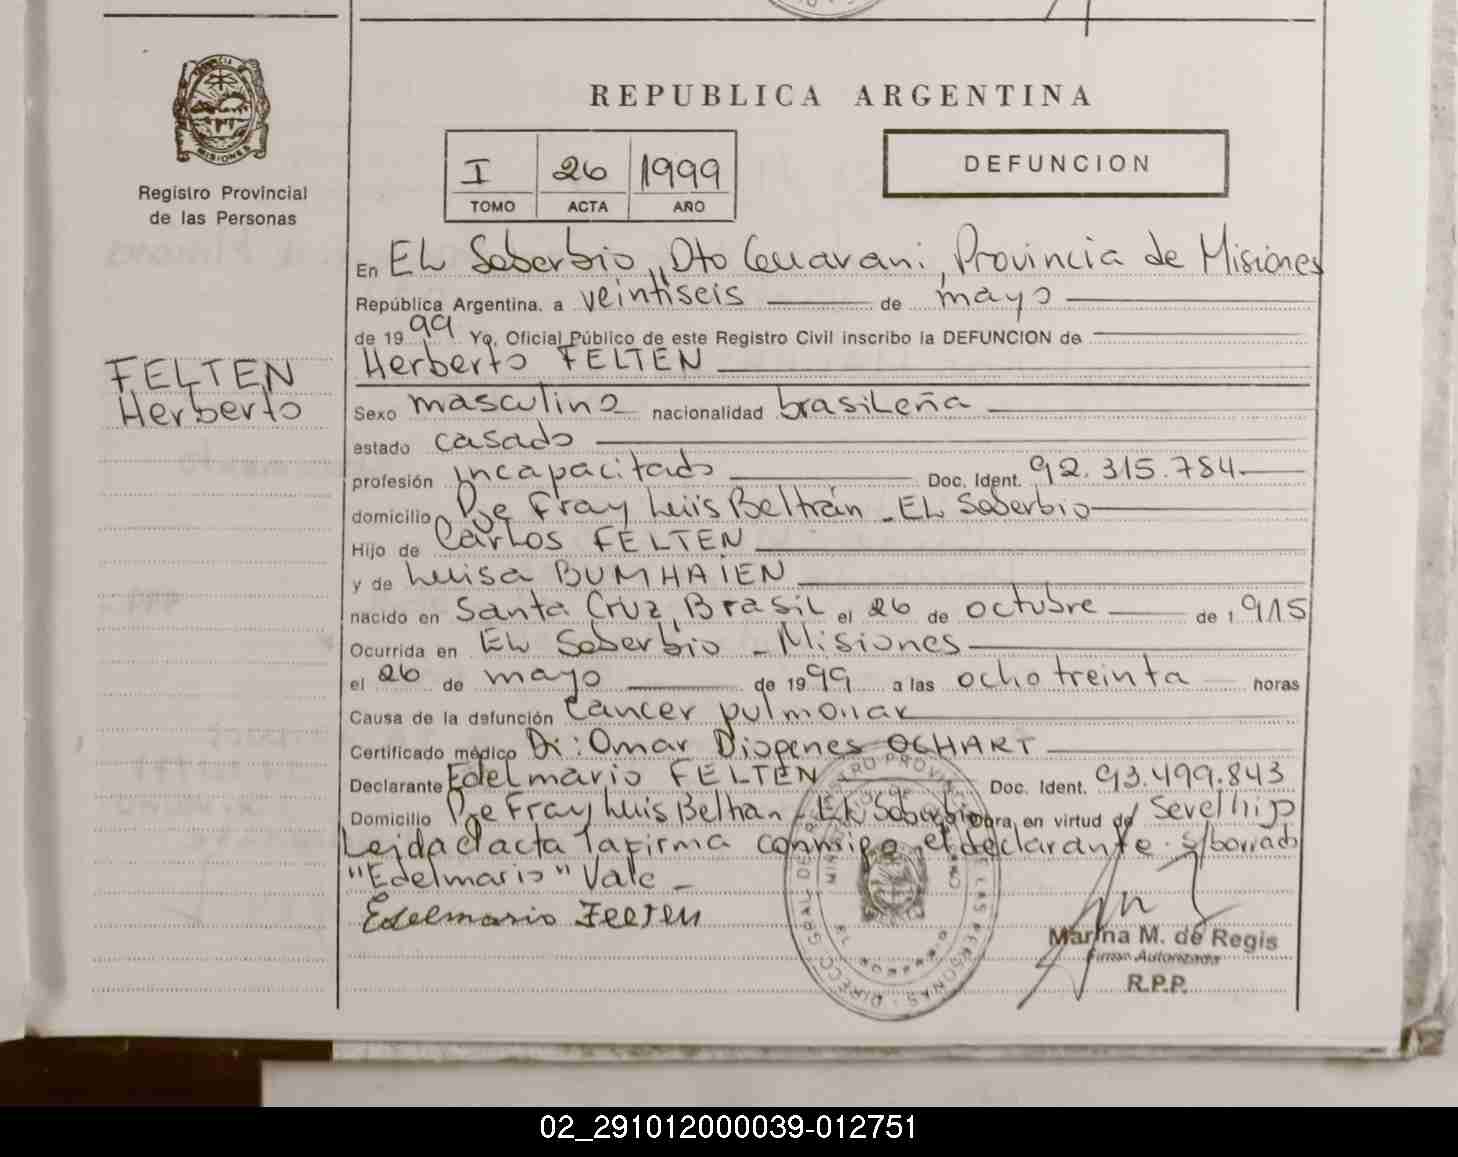 PROVINCIA DE
MISIONES
Registro Provincial
de las Personas
FELTEN
Herberto
REPUBLICA ARGENTINA
I 26 1999
TOMO ACTA AÑO
DEFUNCION
En EL Soberbio, Dto Guarani, Provincia de Misiones
República Argentina, a veintiseis de mayo
de 1999 Yo, Oficial Público de este Registro Civil inscribo la DEFUNCION de
Herberto FELTEN
Sexo masculino nacionalidad brasileña
estado casado
profesión incapacitado Doc. Ident. 92.315.784
domicilio Pje Fray Luis Beltrán - EL Soberbio
Hijo de Carlos FELTEN
y de Luisa BUMHAIEN
nacido en Santa Cruz, Brasil el 26 de octubre de 1915
Ocurrida en EL Soberbio - Misiones
el 26 de mayo de 1999 a las ocho treinta horas
Causa de la defunción Cancer pulmonar
Certificado médico Dr: Omar Diogenes OCHART
Declarante Edelmario FELTEN Doc. Ident. 93.499.843
Domicilio Pje Fray Luis Beltran - EL Soberbio obra en virtud de Ser el hijo
Leida el acta la firma conmigo el declarante. s/borrado
"Edelmario" Vale -
Edelmario Felten
Marina M. de Regis
Firma Autorizada
R.P.P.
02_291012000039-012751